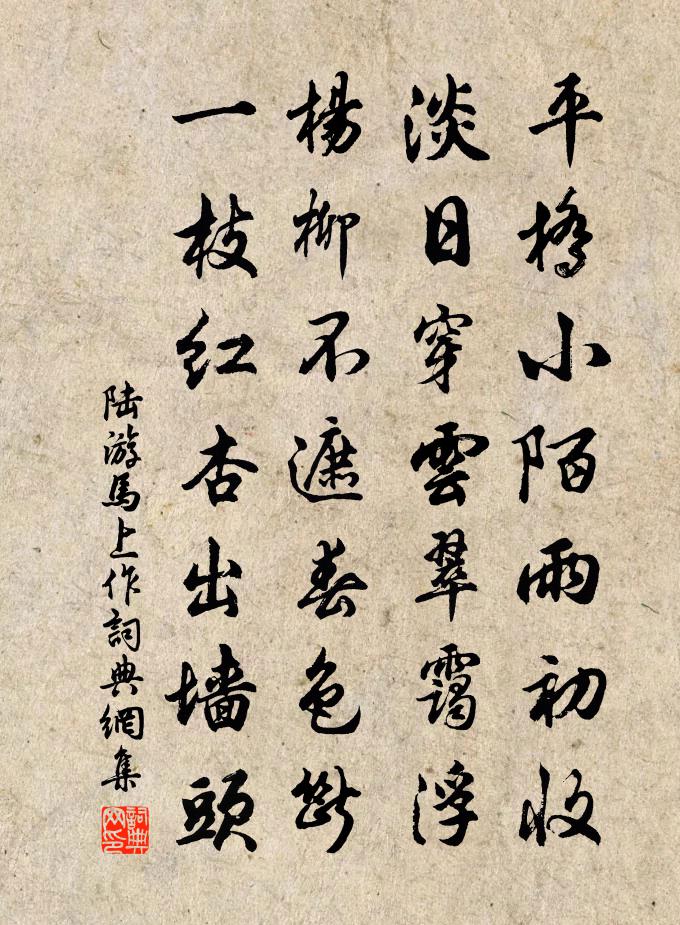 平橋小陌雨初收
淡日穿雲翠靄浮
楊柳不遮春色斷
一枝紅杏出墻頭
陆游馬上作詞典網集
詞典网印